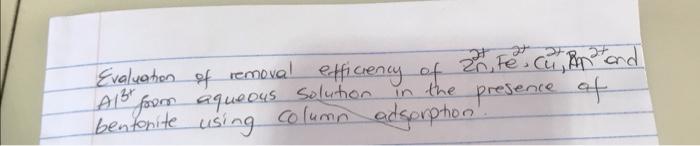 Evaluation of removal efficiency of Zn²⁺, Fe²⁺, Cu²⁺, and
Al³⁺ from aqueous solution in the presence of
bentonite using column adsorption.